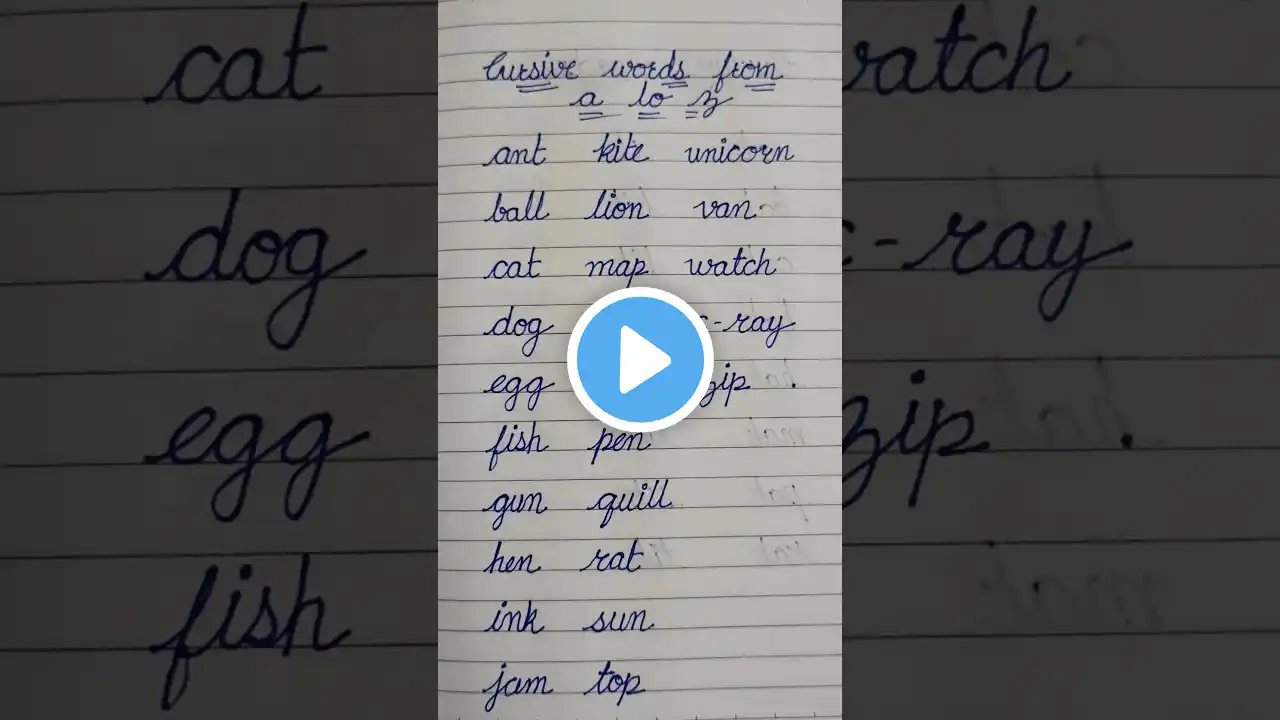 Cursive words from
a to z
ant kite unicorn
ball lion van
cat map watch
dog -ray
egg zip .
fish pen
gun quill
hen rat
ink sun
jam top
cat
dog
egg
fish
-ray
zip .